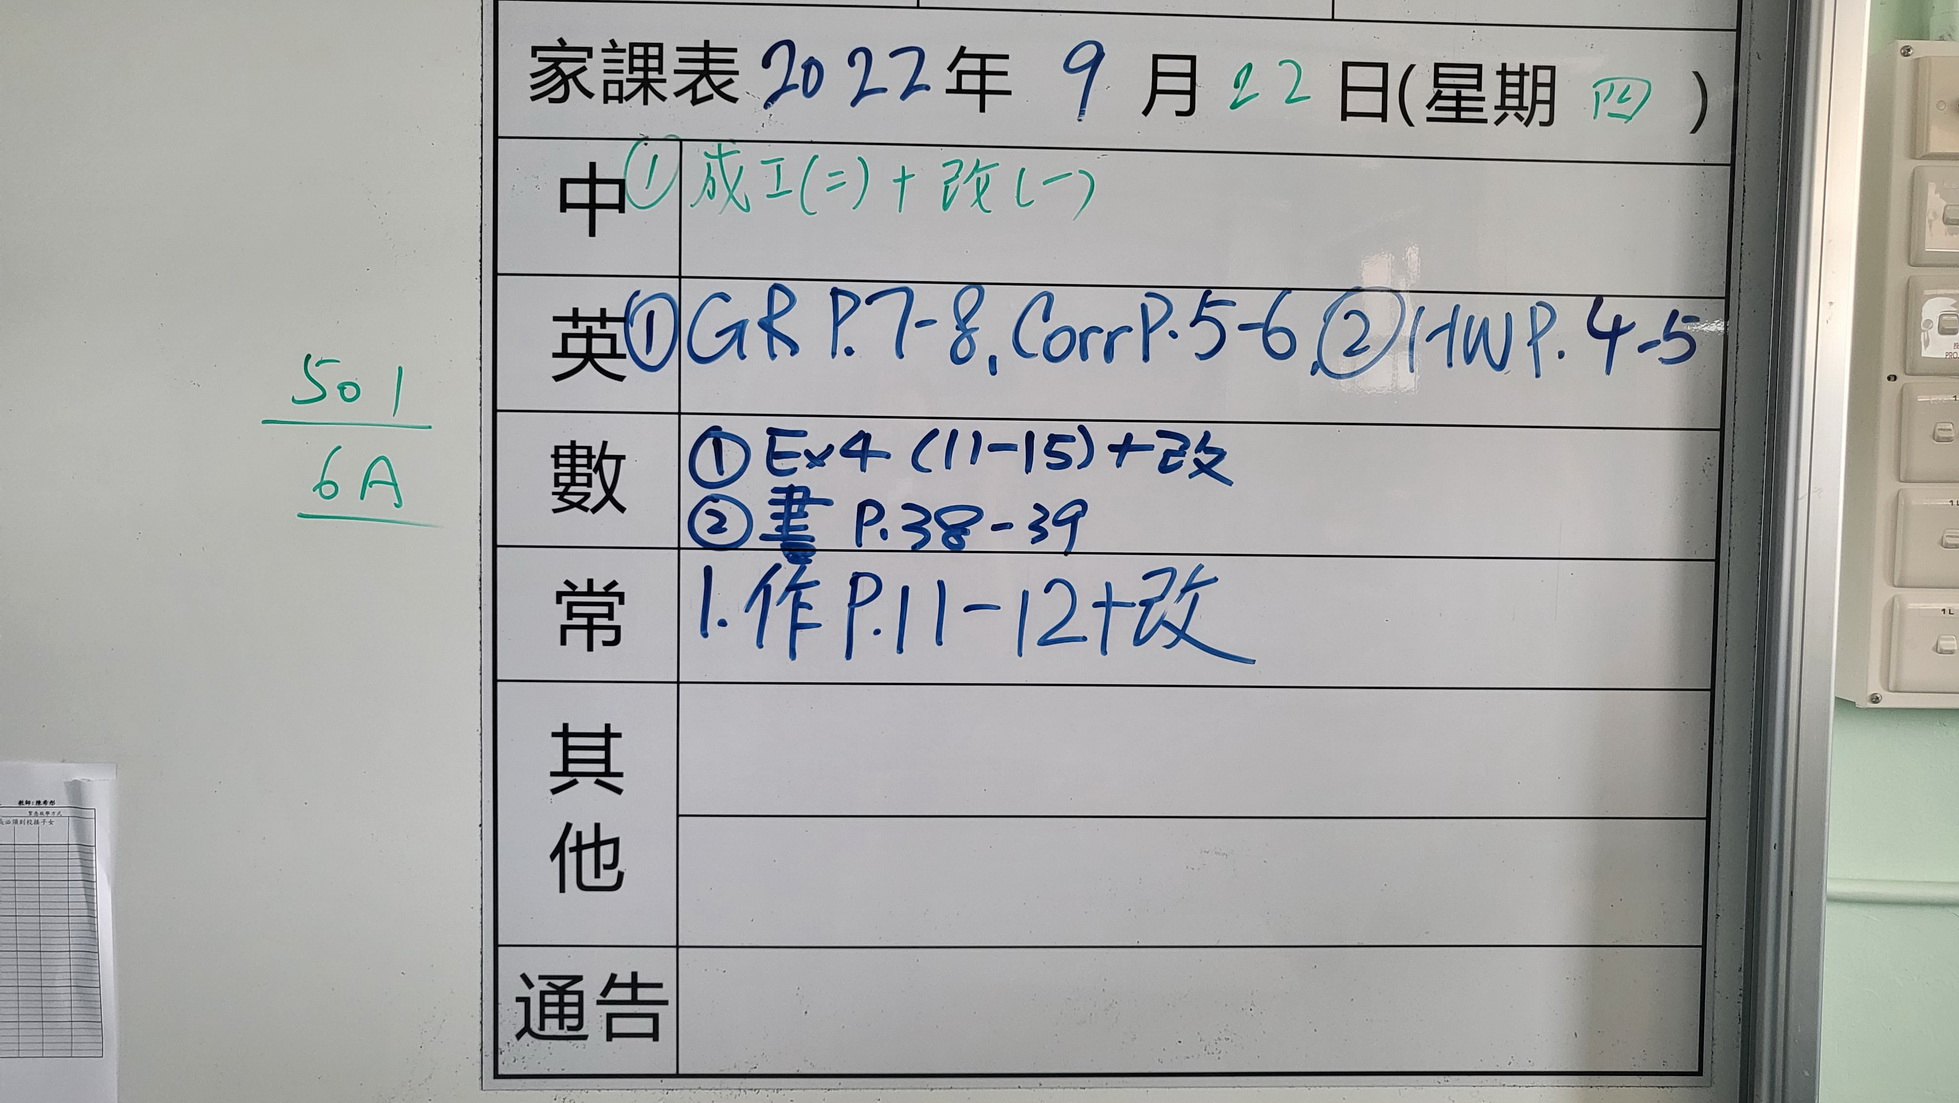 家課表 2022年 9月22日(星期四)
中 ① 成工(二)+改(一)
英 ① GR P.7-8, Corr P.5-6, ② HW P.4-5
數 ① Ex4 (11-15)+改
② 書 P.38-39
常 1. 作 P.11-12+改
其他
通告
501
6A